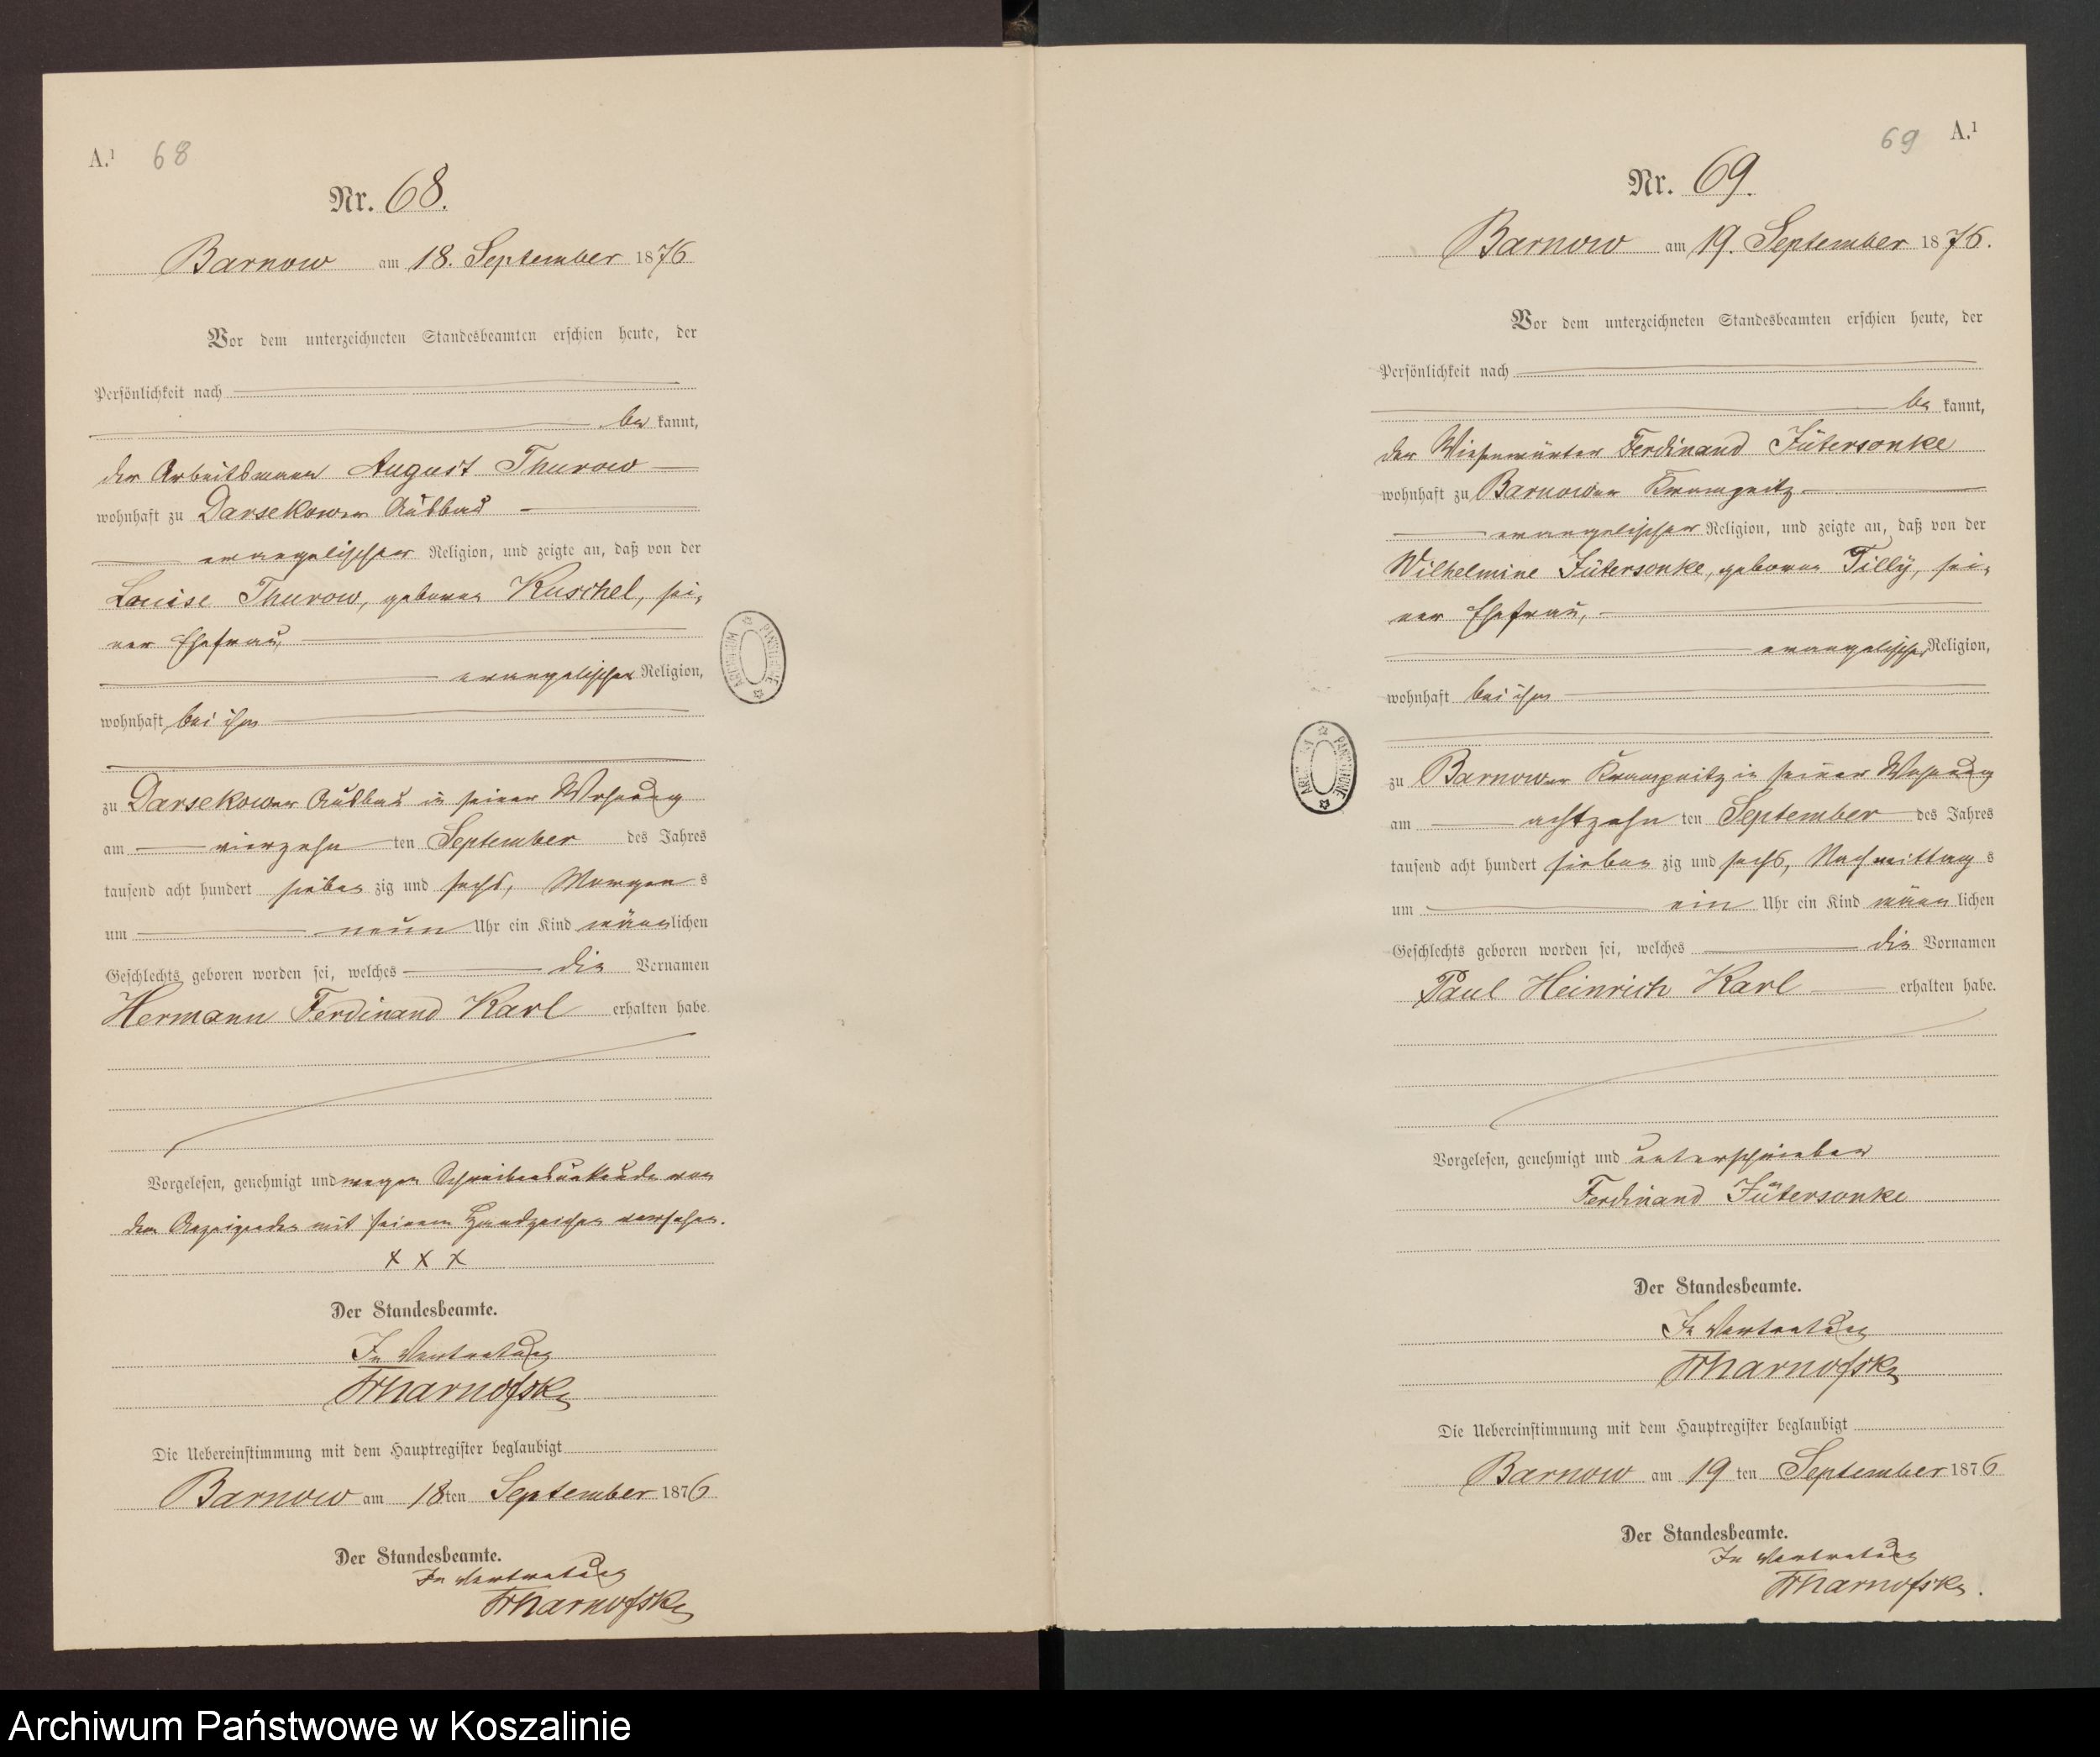 A.¹ 68
Nr. 68.
Barnow am 18. September 1876
Vor dem unterzeichneten Standesbeamten erschien heute, der
Persönlichkeit nach
be kannt,
der Arbeitsmann August Thurow
wohnhaft zu Darsekower Ausbau
evangelischer Religion, und zeigte an, daß von der
Louise Thurow, geborene Kuschel, sei-
ner Ehefrau,
evangelischer Religion,
wohnhaft bei ihm
zu Darsekower Ausbau in seiner Wohnung
am vierzehn ten September des Jahres
tausend acht hundert sieben zig und sechs, Morgen s
um neun Uhr ein Kind männlichen
Geschlechts geboren worden sei, welches die Vornamen
Hermann Ferdinand Karl erhalten habe
Vorgelesen, genehmigt und wegen Schreibensunkunde von
dem Anzeigenden mit seinem Handzeichen versehen.
x x x
Der Standesbeamte.
In Vertretung
Die Uebereinstimmung mit dem Hauptregister beglaubigt
Barnow am 18ten September 1876
Der Standesbeamte.
In Vertretung
ARCHIWUM PAŃSTWOWE
69 A.¹
Nr. 69.
Barnow am 19. September 1876.
Vor dem unterzeichneten Standesbeamten erschien heute, der
Persönlichkeit nach
be kannt,
der Wiesenwärter Ferdinand Jütersonke
wohnhaft zu Barnower Krampnitz
evangelischer Religion, und zeigte an, daß von der
Wilhelmine Jütersonke, geborene Tilly, sei-
ner Ehefrau,
evangelischer Religion,
wohnhaft bei ihm
zu Barnower Krampnitz in seiner Wohnung
am achtzehn ten September des Jahres
tausend acht hundert sieben zig und sechs, Nachmittag s
um ein Uhr ein Kind männlichen
Geschlechts geboren worden sei, welches die Vornamen
Paul Heinrich Karl erhalten habe.
Vorgelesen, genehmigt und unterschrieben
Ferdinand Jütersonke
Der Standesbeamte.
In Vertretung
Die Uebereinstimmung mit dem Hauptregister beglaubigt
Barnow am 19 ten September 1876
Der Standesbeamte.
In Vertretung
Archiwum Państwowe w Koszalinie